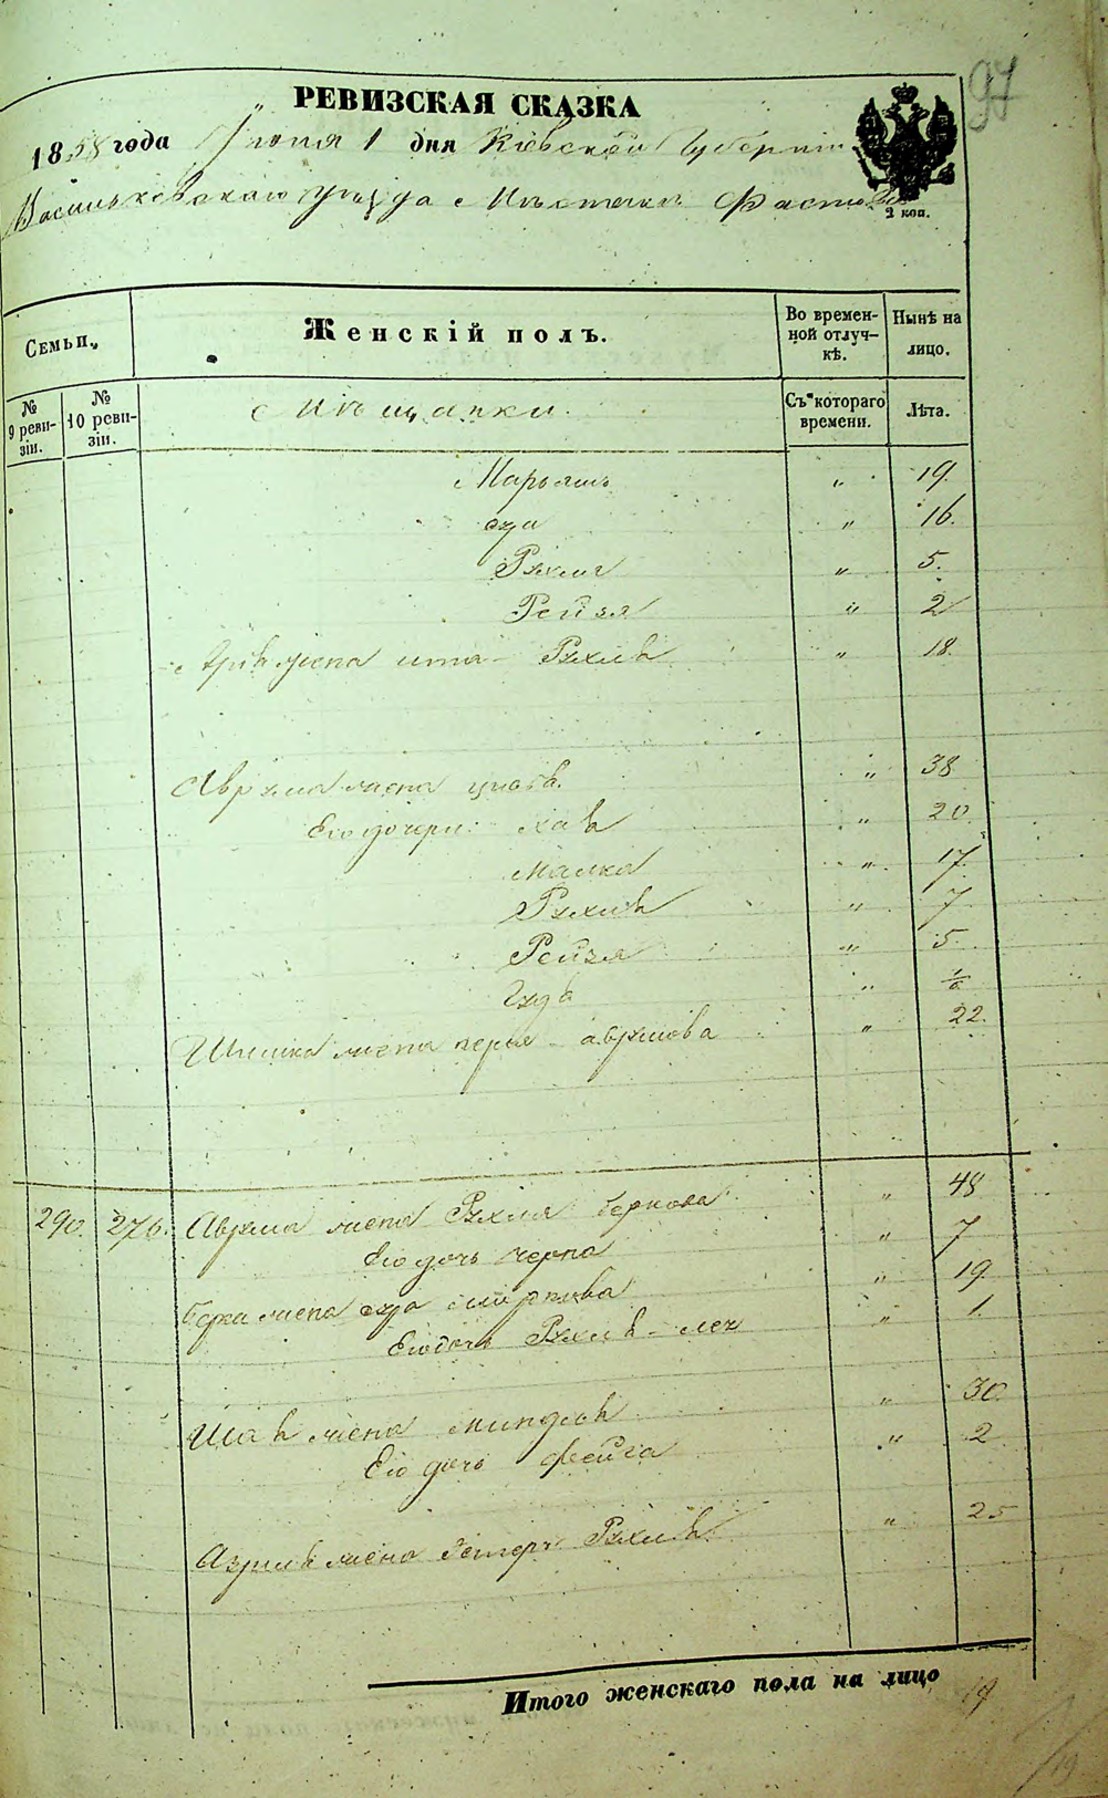 97
РЕВИЗСКАЯ СКАЗКА
1858 года Іюня 1 дня Кіевской Губерніи
Васильковскаго уѣзда Мѣстечка Фастова
2 коп.
Семьи.
Женскій полъ.
Во времен-
ной отлуч-
кѣ.
Нынѣ на
лицо.
№
9 реви-
зіи.
№
10 реви-
зіи.
Мѣщанки.
Съ котораго
времени.
Лѣта.
Марьямъ „ 19.
„ 16.
Рухля „ 5.
Рейзя „ 2
жена Рухлѣ „ 18.
жена „ 38
Его дочери: Хаѣ „ 20.
Малка „ 17.
Рухлѣ „ 7
Рейзя „ 5.
„
жена Аврумова „ 22.
290. 276. Аврума жена Рухля Беркова „ 48
Его дочь Черна „ 7
Берка жена „ 19.
Его дочь Рухлѣ „ 1.
жена Миндлѣ „ 30.
Его дочь Фейга „ 2
жена Естеръ Рухлѣ „ 25
Итого женскаго пола на лицо 19
19